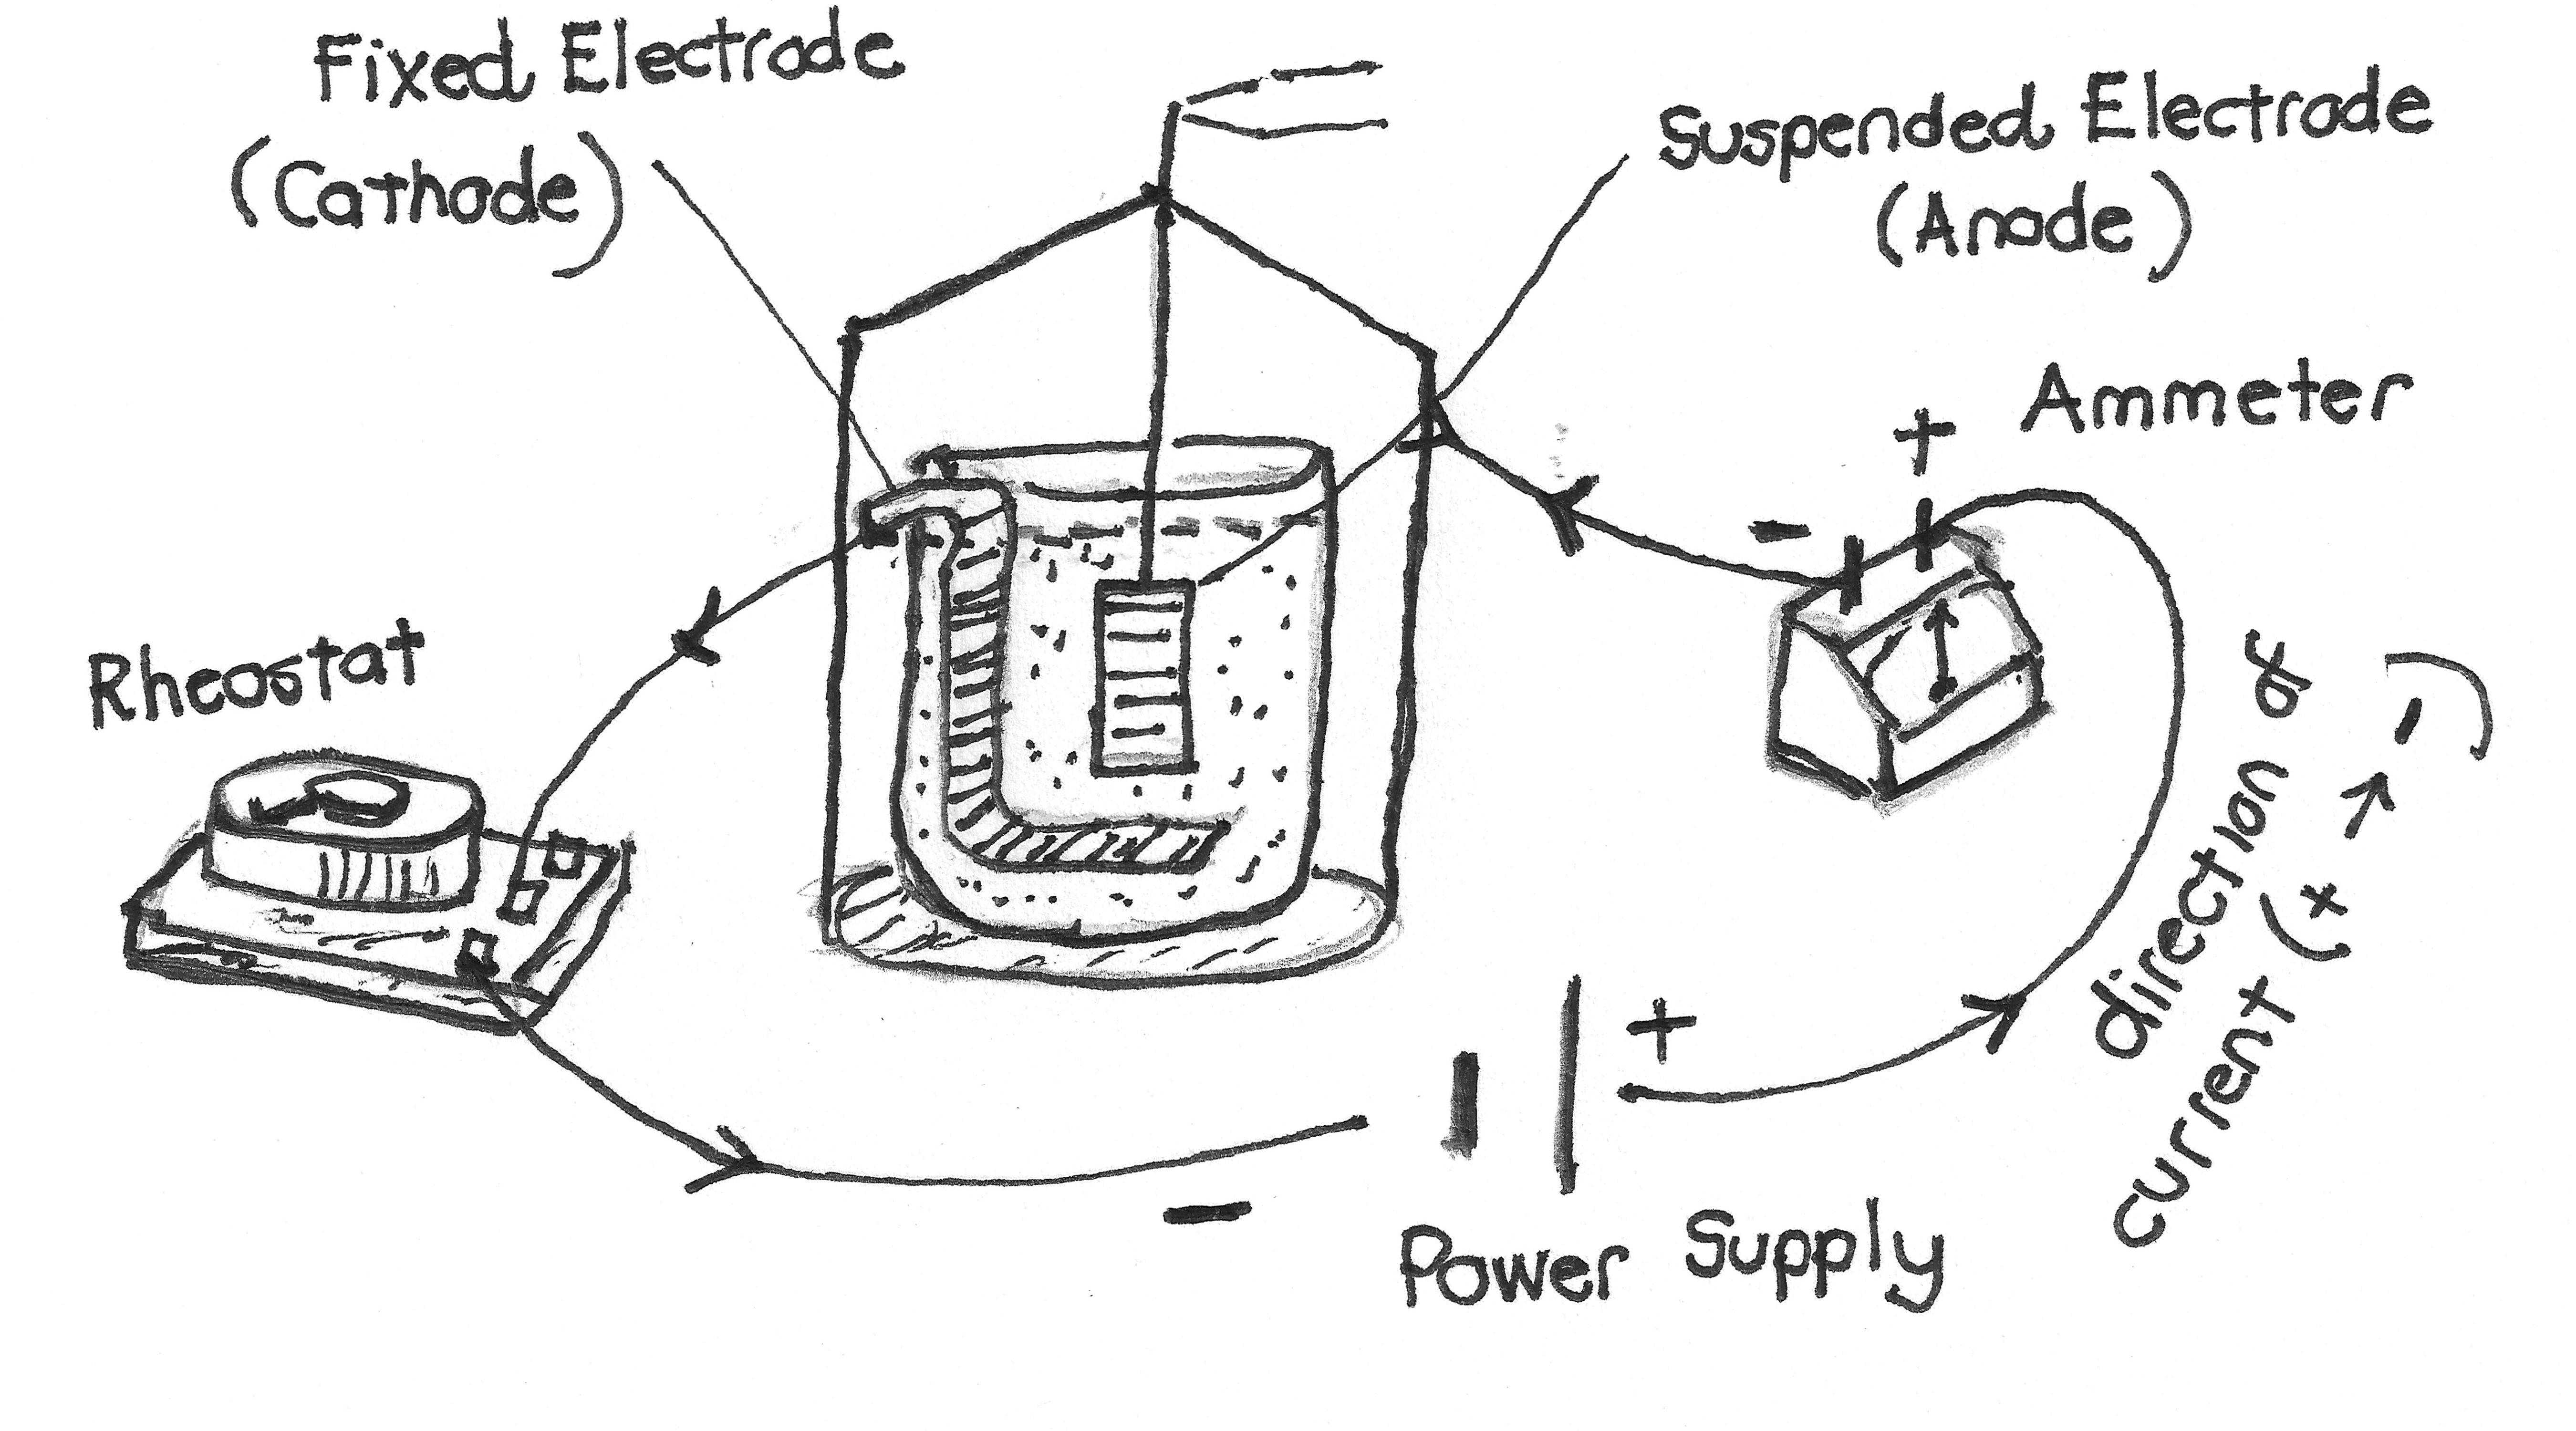 Fixed Electrode
(Cathode)
Suspended Electrode
(Anode)
Ammeter
+
-
Rheostat
direction of
current (+ → -)
+
-
Power Supply